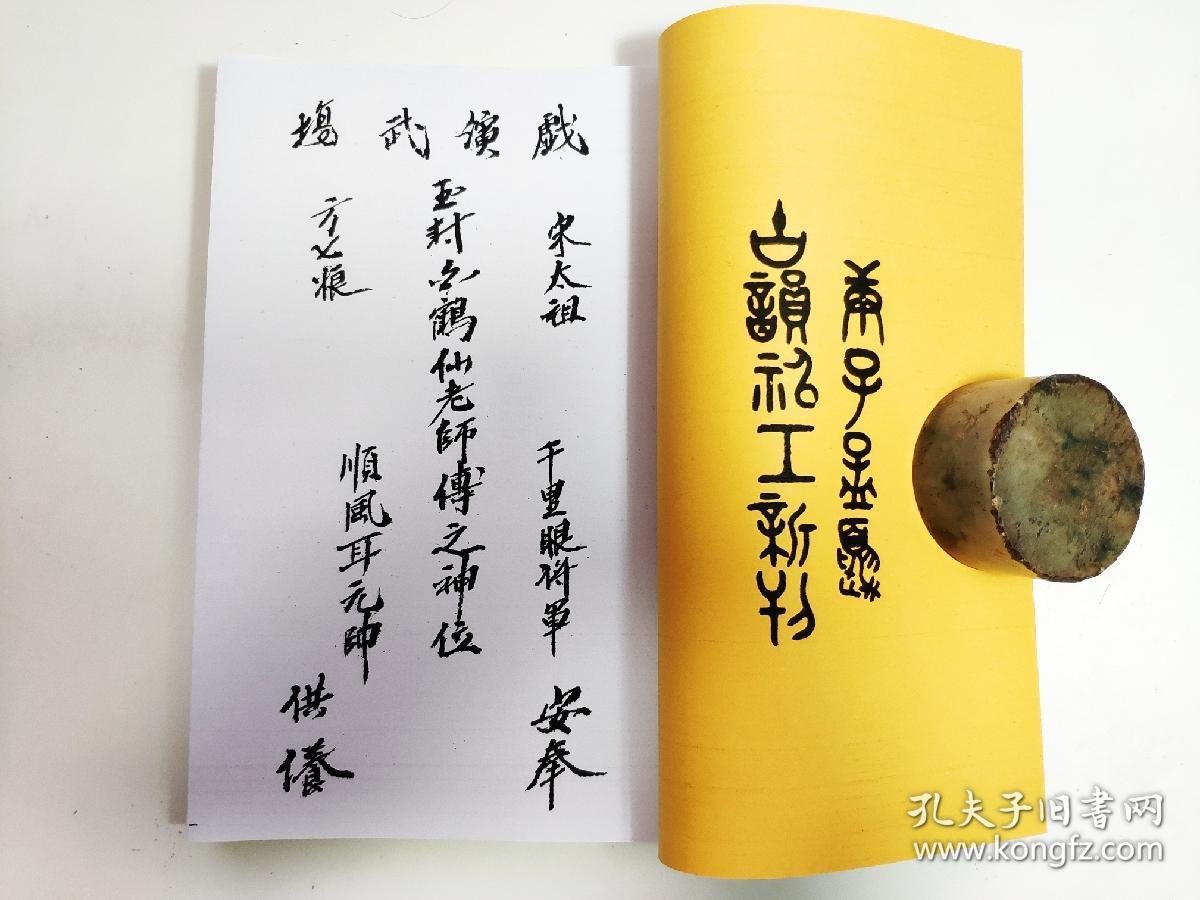 庚子孟夏
古韻工新刊
戲演武場
宋太祖
千里眼将軍
安奉
玉封白鶴仙老師傅之神位
方七娘
順風耳元帥
供養
孔夫子旧书网
www.kongfz.com